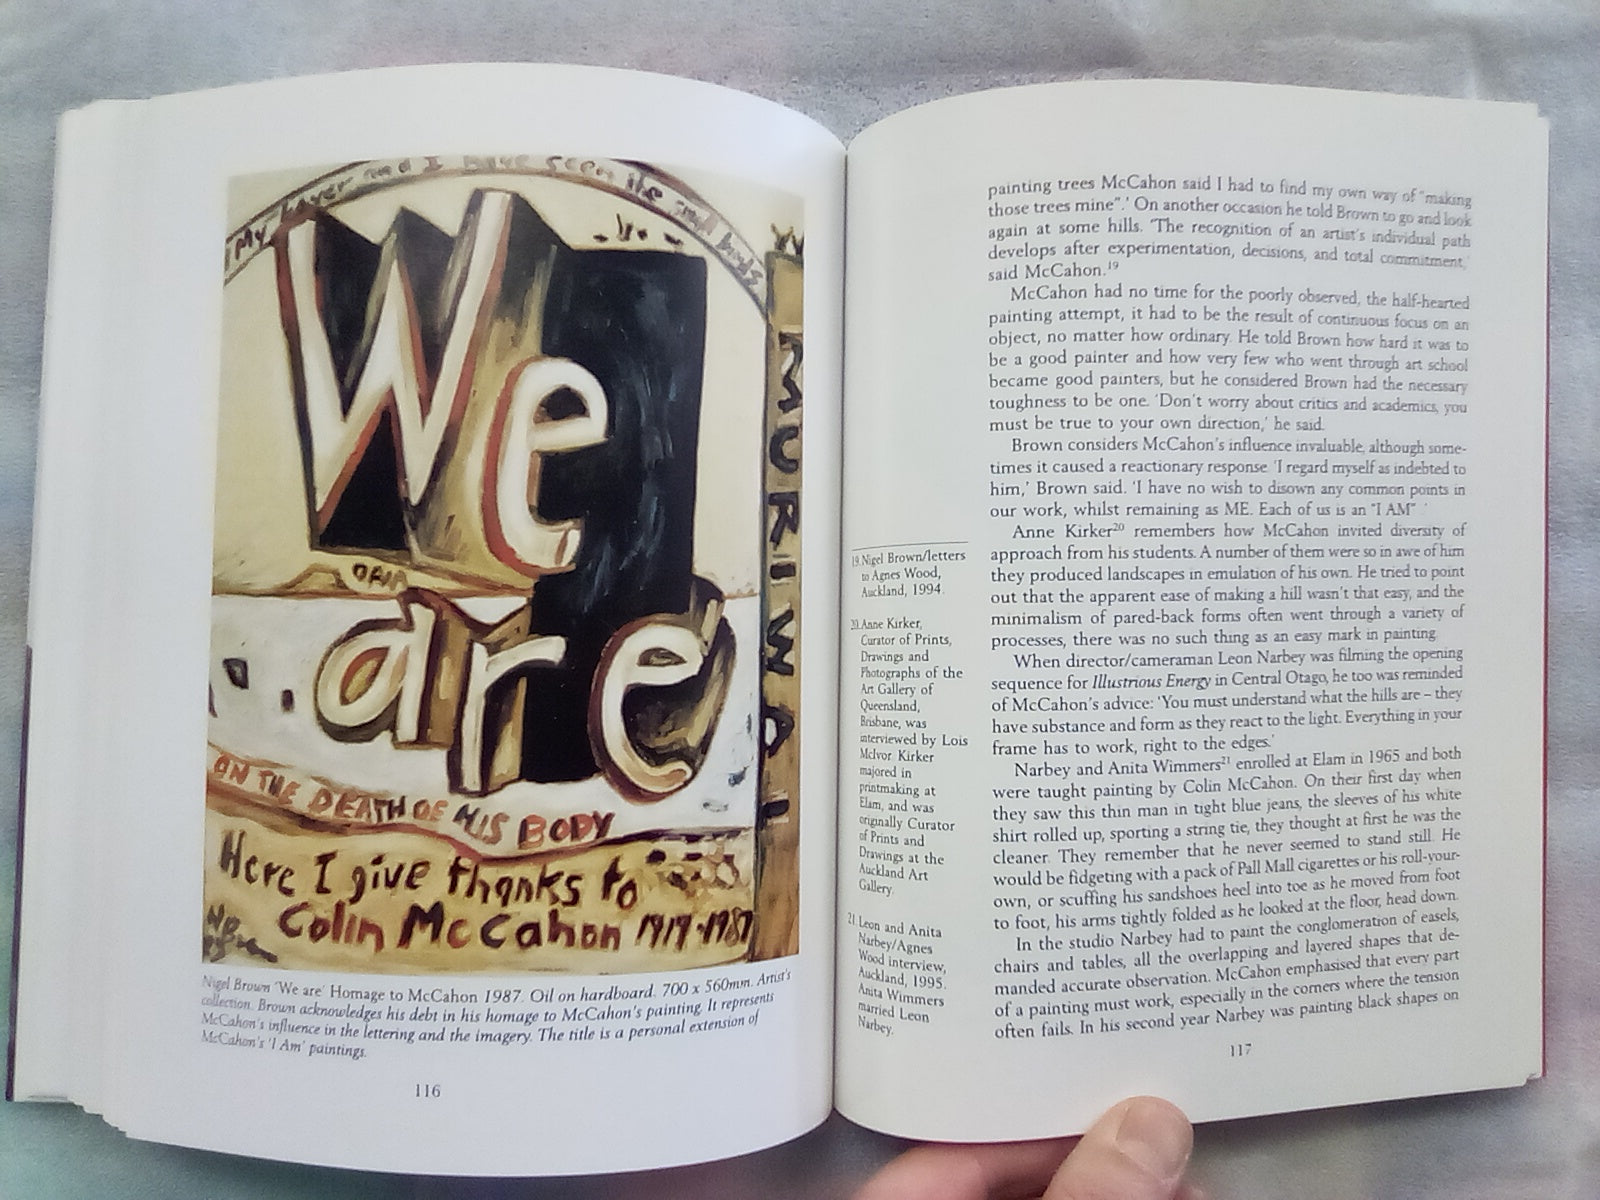 My
and I have seen the small birds
We
MURIWAI
are
ON THE DEATH OF HIS BODY
Here I give thanks to
Colin McCahon 1919-1987
Nigel Brown 'We are' Homage to McCahon 1987. Oil on hardboard. 700 x 560mm. Artist's
collection. Brown acknowledges his debt in his homage to McCahon's painting. It represents
McCahon's influence in the lettering and the imagery. The title is a personal extension of
McCahon's 'I Am' paintings.
116
painting trees McCahon said I had to find my own way of "making
those trees mine".' On another occasion he told Brown to go and look
again at some hills. 'The recognition of an artist's individual path
develops after experimentation, decisions, and total commitment,'
said McCahon.19
McCahon had no time for the poorly observed, the half-hearted
painting attempt, it had to be the result of continuous focus on an
object, no matter how ordinary. He told Brown how hard it was to
be a good painter and how very few who went through art school
became good painters, but he considered Brown had the necessary
toughness to be one. 'Don't worry about critics and academics, you
must be true to your own direction,' he said.
Brown considers McCahon's influence invaluable, although some-
times it caused a reactionary response. 'I regard myself as indebted to
him,' Brown said. 'I have no wish to disown any common points in
our work, whilst remaining as ME. Each of us is an "I AM" .'
Anne Kirker20 remembers how McCahon invited diversity of
approach from his students. A number of them were so in awe of him
they produced landscapes in emulation of his own. He tried to point
out that the apparent ease of making a hill wasn't that easy, and the
minimalism of pared-back forms often went through a variety of
processes, there was no such thing as an easy mark in painting.
When director/cameraman Leon Narbey was filming the opening
sequence for Illustrious Energy in Central Otago, he too was reminded
of McCahon's advice: 'You must understand what the hills are – they
have substance and form as they react to the light. Everything in your
frame has to work, right to the edges.'
Narbey and Anita Wimmers21 enrolled at Elam in 1965 and both
were taught painting by Colin McCahon. On their first day when
they saw this thin man in tight blue jeans, the sleeves of his white
shirt rolled up, sporting a string tie, they thought at first he was the
cleaner. They remember that he never seemed to stand still. He
would be fidgeting with a pack of Pall Mall cigarettes or his roll-your-
own, or scuffing his sandshoes heel into toe as he moved from foot
to foot, his arms tightly folded as he looked at the floor, head down.
In the studio Narbey had to paint the conglomeration of easels,
chairs and tables, all the overlapping and layered shapes that de-
manded accurate observation. McCahon emphasised that every part
of a painting must work, especially in the corners where the tension
often fails. In his second year Narbey was painting black shapes on
19.Nigel Brown/letters
to Agnes Wood,
Auckland, 1994.
20.Anne Kirker,
Curator of Prints,
Drawings and
Photographs of the
Art Gallery of
Queensland,
Brisbane, was
interviewed by Lois
McIvor Kirker
majored in
printmaking at
Elam, and was
originally Curator
of Prints and
Drawings at the
Auckland Art
Gallery.
21.Leon and Anita
Narbey/Agnes
Wood interview,
Auckland, 1995.
Anita Wimmers
married Leon
Narbey.
117